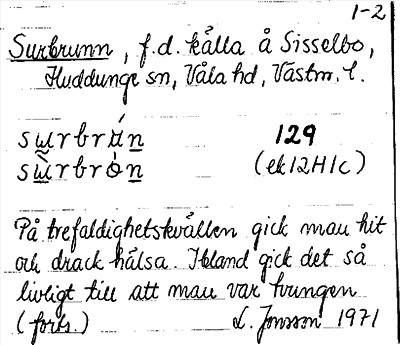 1-2
Surbrunn, f.d. källa å Sisselbo,
Huddunge sn, Våla hd, Västm. l.
129
(ek 12H1c)
På trefaldighetskvällen gick man hit
och drack hälsa. Ibland gick det så
livligt till att man var tvungen
(forts.) L. Jonsson 1971